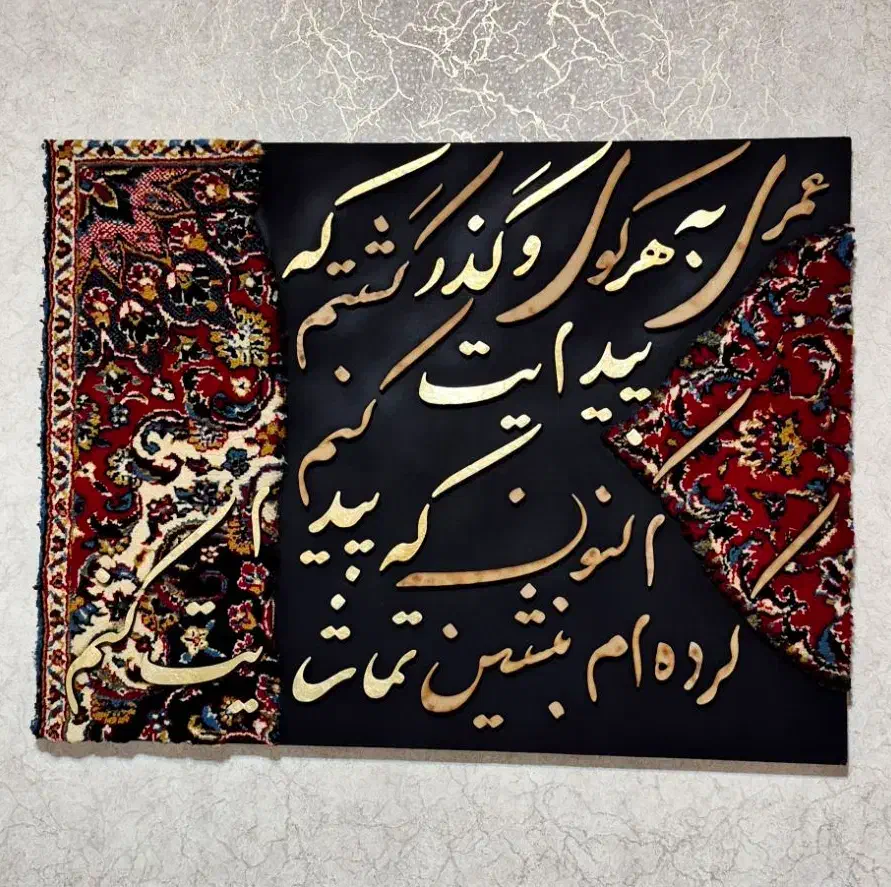 عمری به هر کوی و گذر گشتم که
پیدایت کنم
اکنون که پیدا
کرده ام بنشین تماشایت کنم